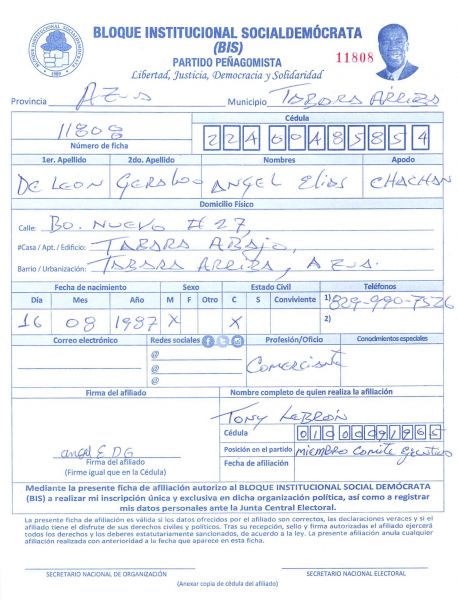 BLOQUE INSTITUCIONAL SOCIALDEMÓCRATA
(BIS)
PARTIDO PEÑAGOMISTA
Libertad, Justicia, Democracia y Solidaridad
11808
BLOQUE INSTITUCIONAL SOCIALDEMOCRATA
Provincia AZUA Municipio TABARA ARRIBA
11808
Número de ficha
Cédula
Ier. Apellido 2do. Apellido Nombres Apodo
DE LEON GERALDO ANGEL Elias CHACHAN
Domicilio Físico
Calle: BO. NUEVO # 27,
#Casa / Apt. / Edificio: TABARA ABAJO,
Barrio / Urbanización: TABARA ARRIBA, AZUA.
Fecha de nacimiento Sexo Estado Civil Teléfonos
Día Mes Año M F Otro C S Conviviente
1) 829-990-7526
2)
16 08 1987 X X
Correo electrónico Redes sociales Profesión/Oficio Conocimientos especiales
@
@
@
Comerciante
Firma del afiliado
Nombre completo de quien realiza la afiliación
Tony LeBRÓN
angel E DG
Firma del afiliado
(Firme igual que en la Cédula)
Cédula
Posición en el partido Miembro Comite Ejecutivo
Fecha de afiliación
Mediante la presente ficha de afiliación autorizo al BLOQUE INSTITUCIONAL SOCIAL DEMÓCRATA
(BIS) a realizar mi inscripción única y exclusiva en dicha organización política, así como a registrar
mis datos personales ante la Junta Central Electoral.
La presente ficha de afiliación es válida si los datos ofrecidos por el afiliado son correctos, las declaraciones veraces y si el
afiliado tiene el disfrute de sus derechos civiles y políticos. Tras su recepción, sello y firma autorizadas el afiliado ejercerá
todos los derechos y los deberes estatutariamente sancionados, de acuerdo a la ley. La presente afiliación anula cualquier
afiliación realizada con anterioridad a la fecha que aparece en esta ficha.
SECRETARIO NACIONAL DE ORGANIZACIÓN SECRETARIO NACIONAL ELECTORAL
(Anexar copia de cédula del afiliado)